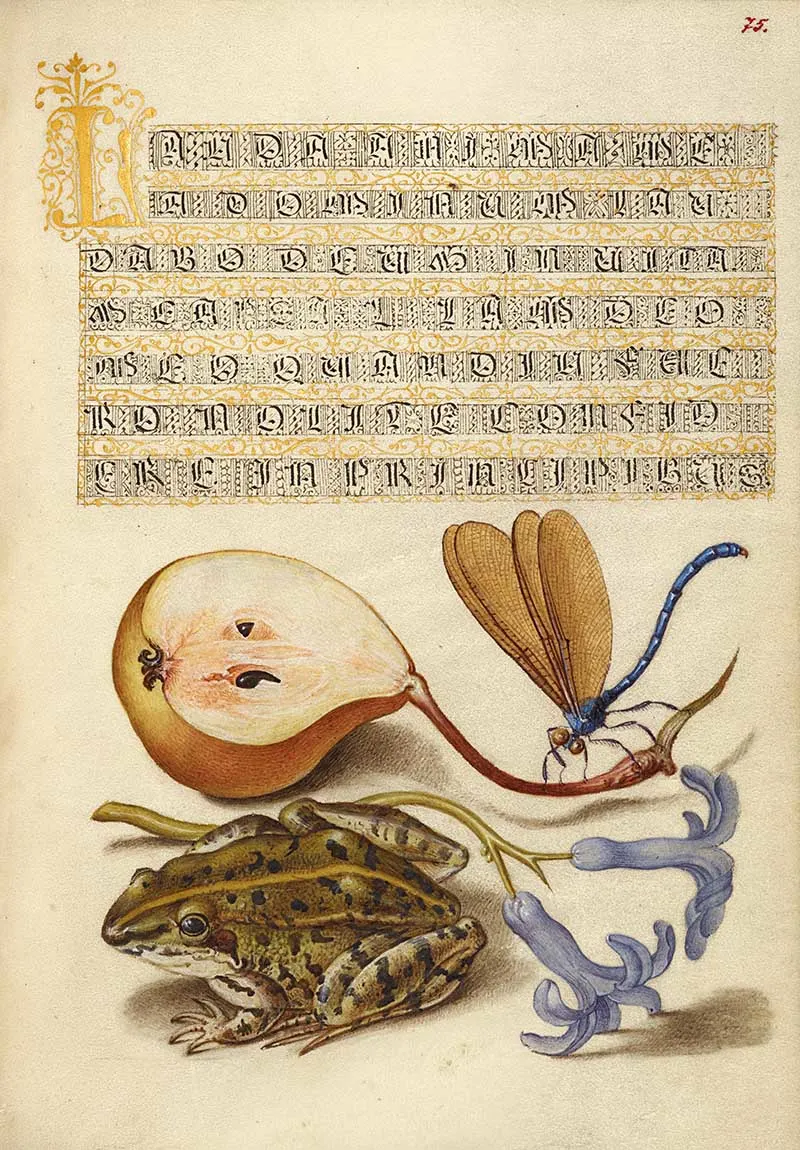 75.
LAUDA ANIMA ME
A DOMINUM LAU
DABO DEUM IN UITA
MEA PSALLAM DEO
MEO QUANDIU FUE
RO NOLITE CONFID
ERE IN PRINCIPIBUS